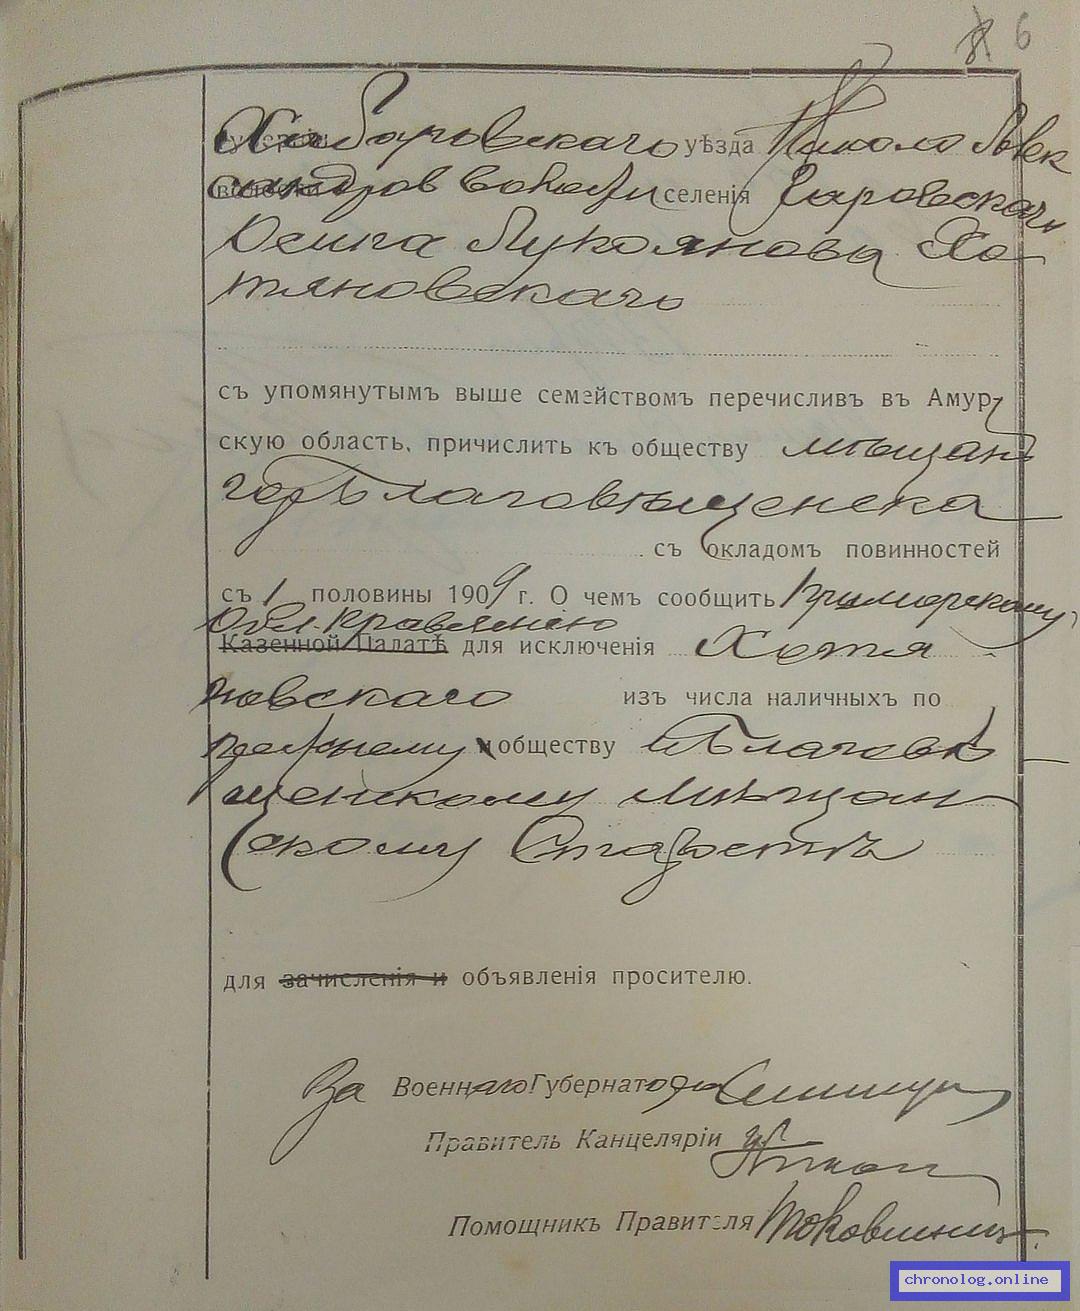 6
Хабаровскаго уѣзда Николо Алек
сандров волости селенія Гаровскаго
Осипа Лукоянова Хо-
тяновскаго
съ упомянутымъ выше семействомъ перечисливъ въ Амур-
скую область, причислить къ обществу мѣщан
гор Благовѣщенска
съ окладомъ повинностей
съ 1 половины 1909 г. О чемъ сообщить Приморскому
Обл. Правленію
Казенной Палатѣ для исключенія Хотя
новскаго изъ числа наличныхъ по
прежнему обществу и Благовѣ
щенскому Мѣщан
скому Старостѣ
для зачисленія и объявленія просителю.
За Военнаго Губернатора
Правитель Канцеляріи
Помощникъ Правителя
chronolog.online